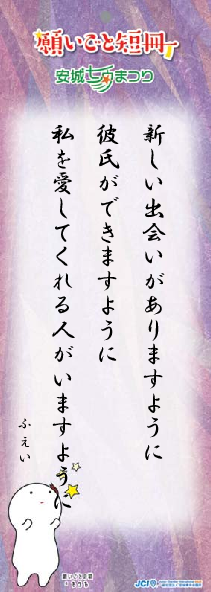 願いごと短冊
安城七夕まつり
新しい出会いがありますように
彼氏ができますように
私を愛してくれる人がいますように
ふぇい
JCI